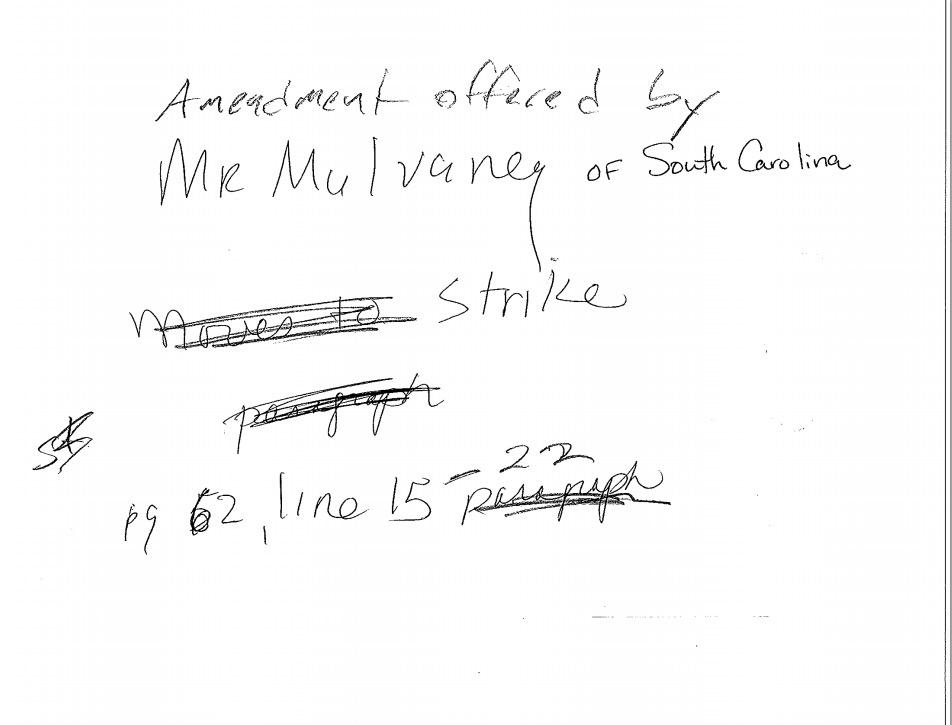 Amendment offered by
Mr Mulvaney of South Carolina
moves to strike
paragraph
pg 62, line 15-22 paragraph